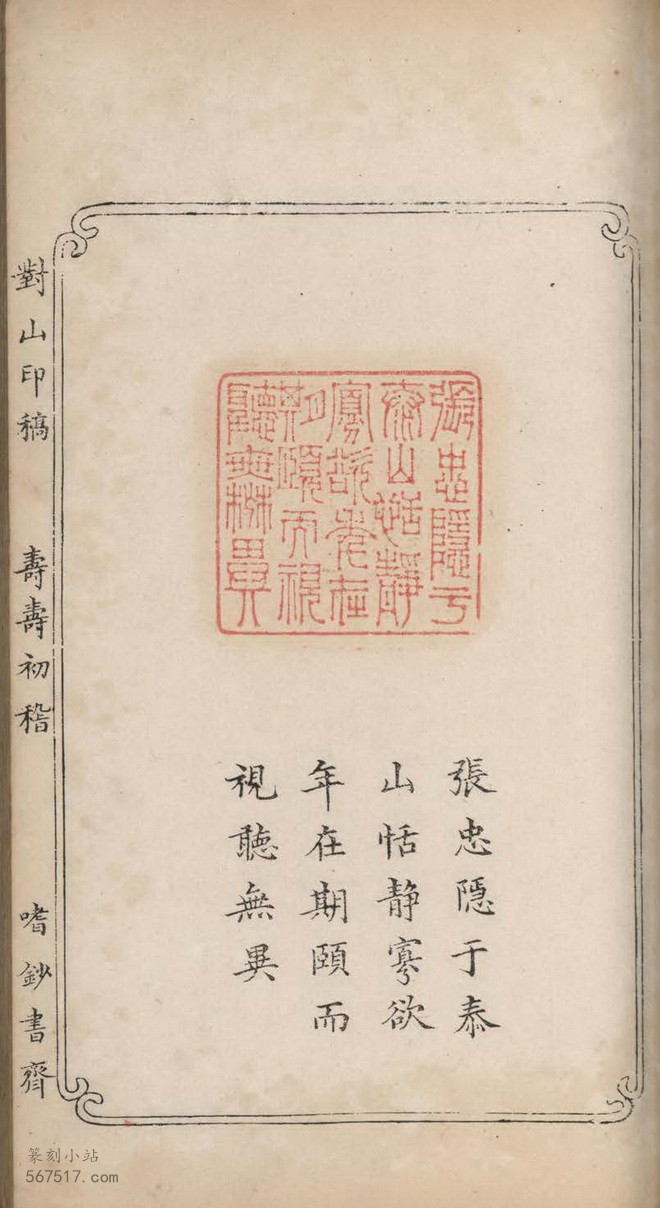 張忠隱于泰
山恬靜寡欲
年在期頤而
視聽無異
張忠隱于
泰山恬靜
寡欲年在
期頤而視
聽無異
對山印稿 壽壽初稽 嗜鈔書齋
篆刻小站
567517.com